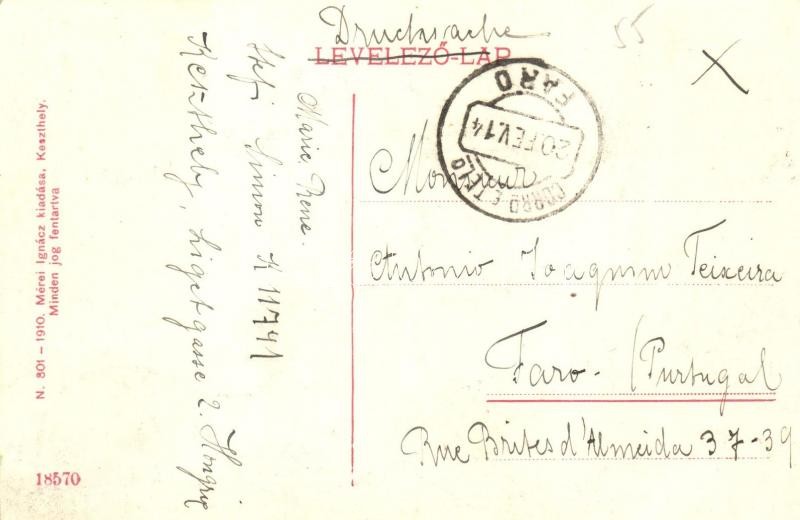 Drucksache
LEVELEZŐ-LAP
55
FARO
20 FEV. 14
CORRO E TELO
Monsieur
Antonio Joaquim Teixeira
Faro- (Purtugal
Rue Brites d'Almeida 37-39
Marie Rene.
Stefi Simon K 11741
Keszthely, Ligetgasse 2. Hongrie
N. 801 – 1910. Mérei Ignácz kiadása, Keszthely.
Minden jog fentartva
18570